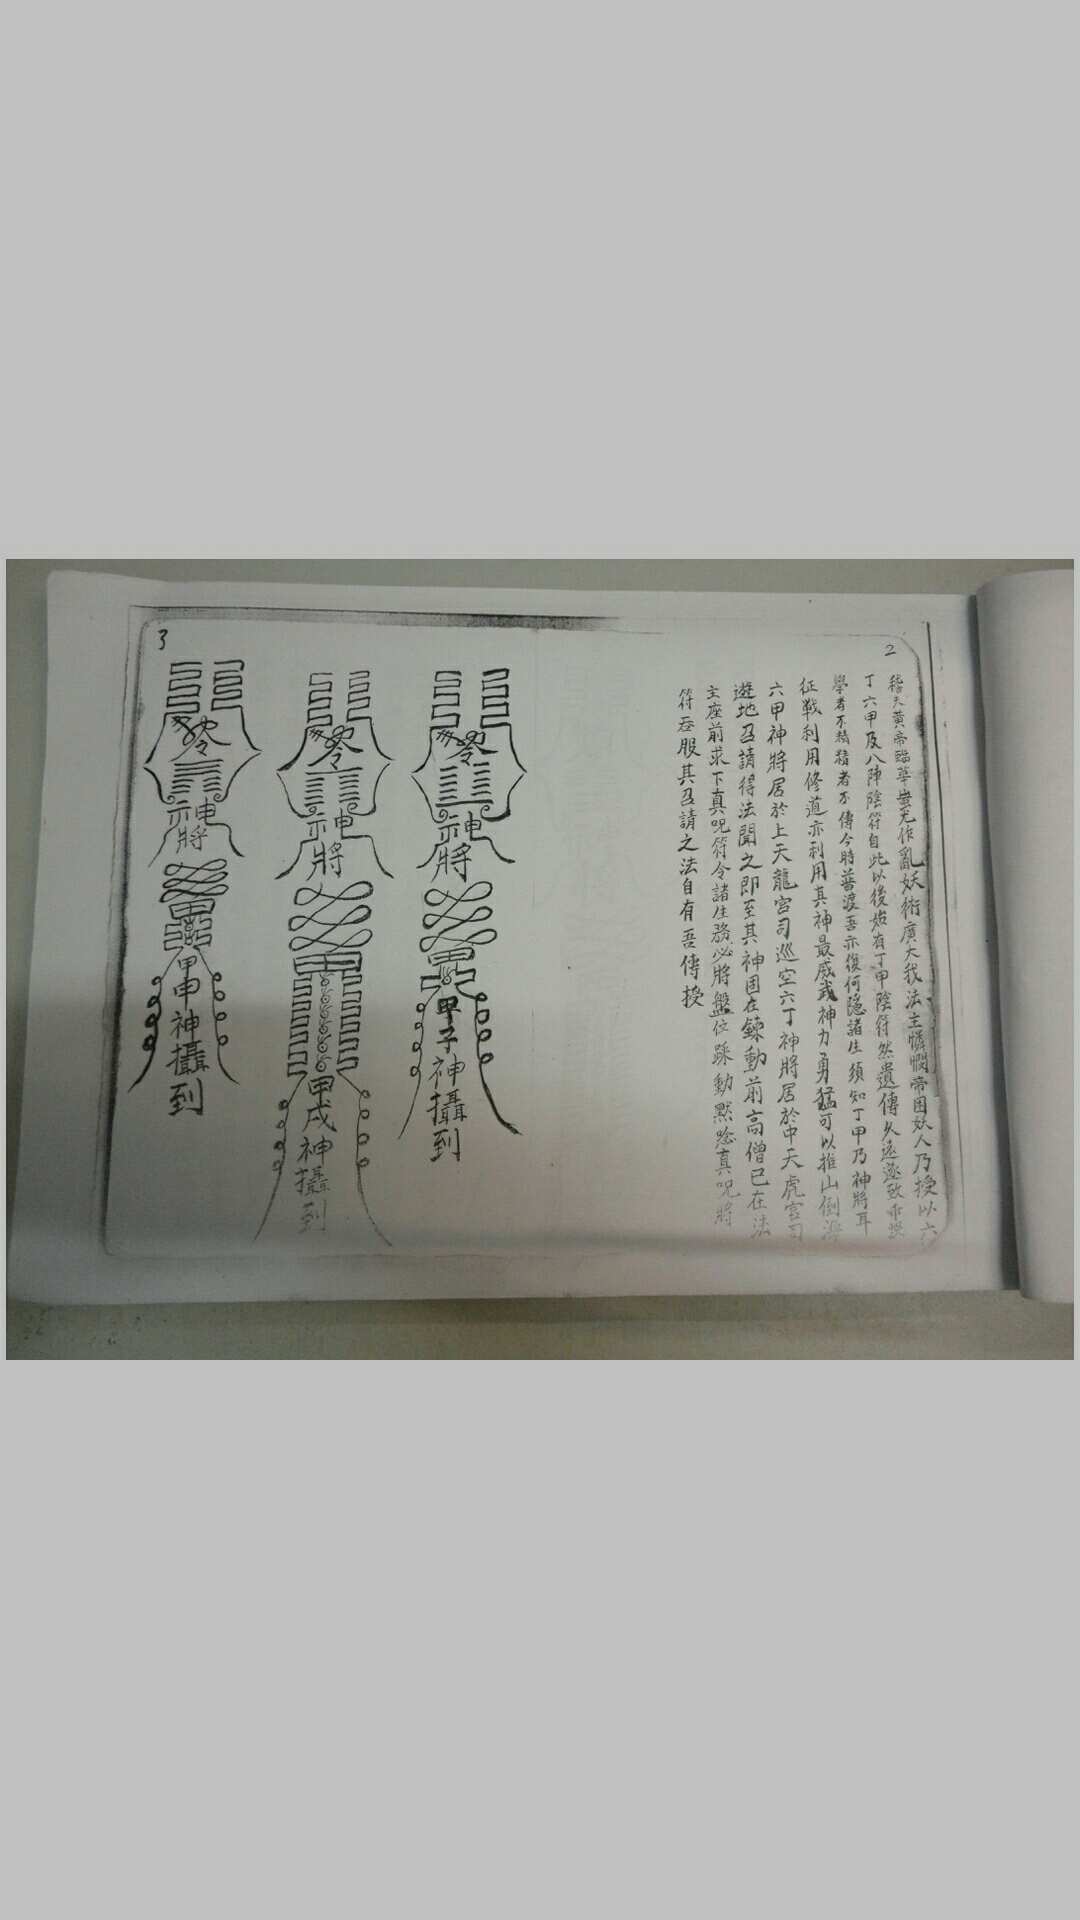 2
稽天黃帝臨華蚩尤作亂妖術廣大我法主憐憫帝困妖人乃授以六
丁六甲及八陣陰符自此以後始有丁甲陰符然遺傳久遠遂致亦
學者不精精者不傳今時普渡吾亦復何隱諸生須知丁甲乃神將耳
征戰利用修道亦利用真神最威武神力勇猛可以推山倒海
六甲神將居於上天龍宮司巡空六丁神將居於中天虎宮司
遊地召請得法聞之即至其神固在鍊動前高僧已在法
主座前求下真咒符令諸生務必將盤位踩動默唸真咒將
符吞服其召請之法自有吾傳授
3
神將
甲子神攝到
神將
甲戌神攝到
神將
甲申神攝到